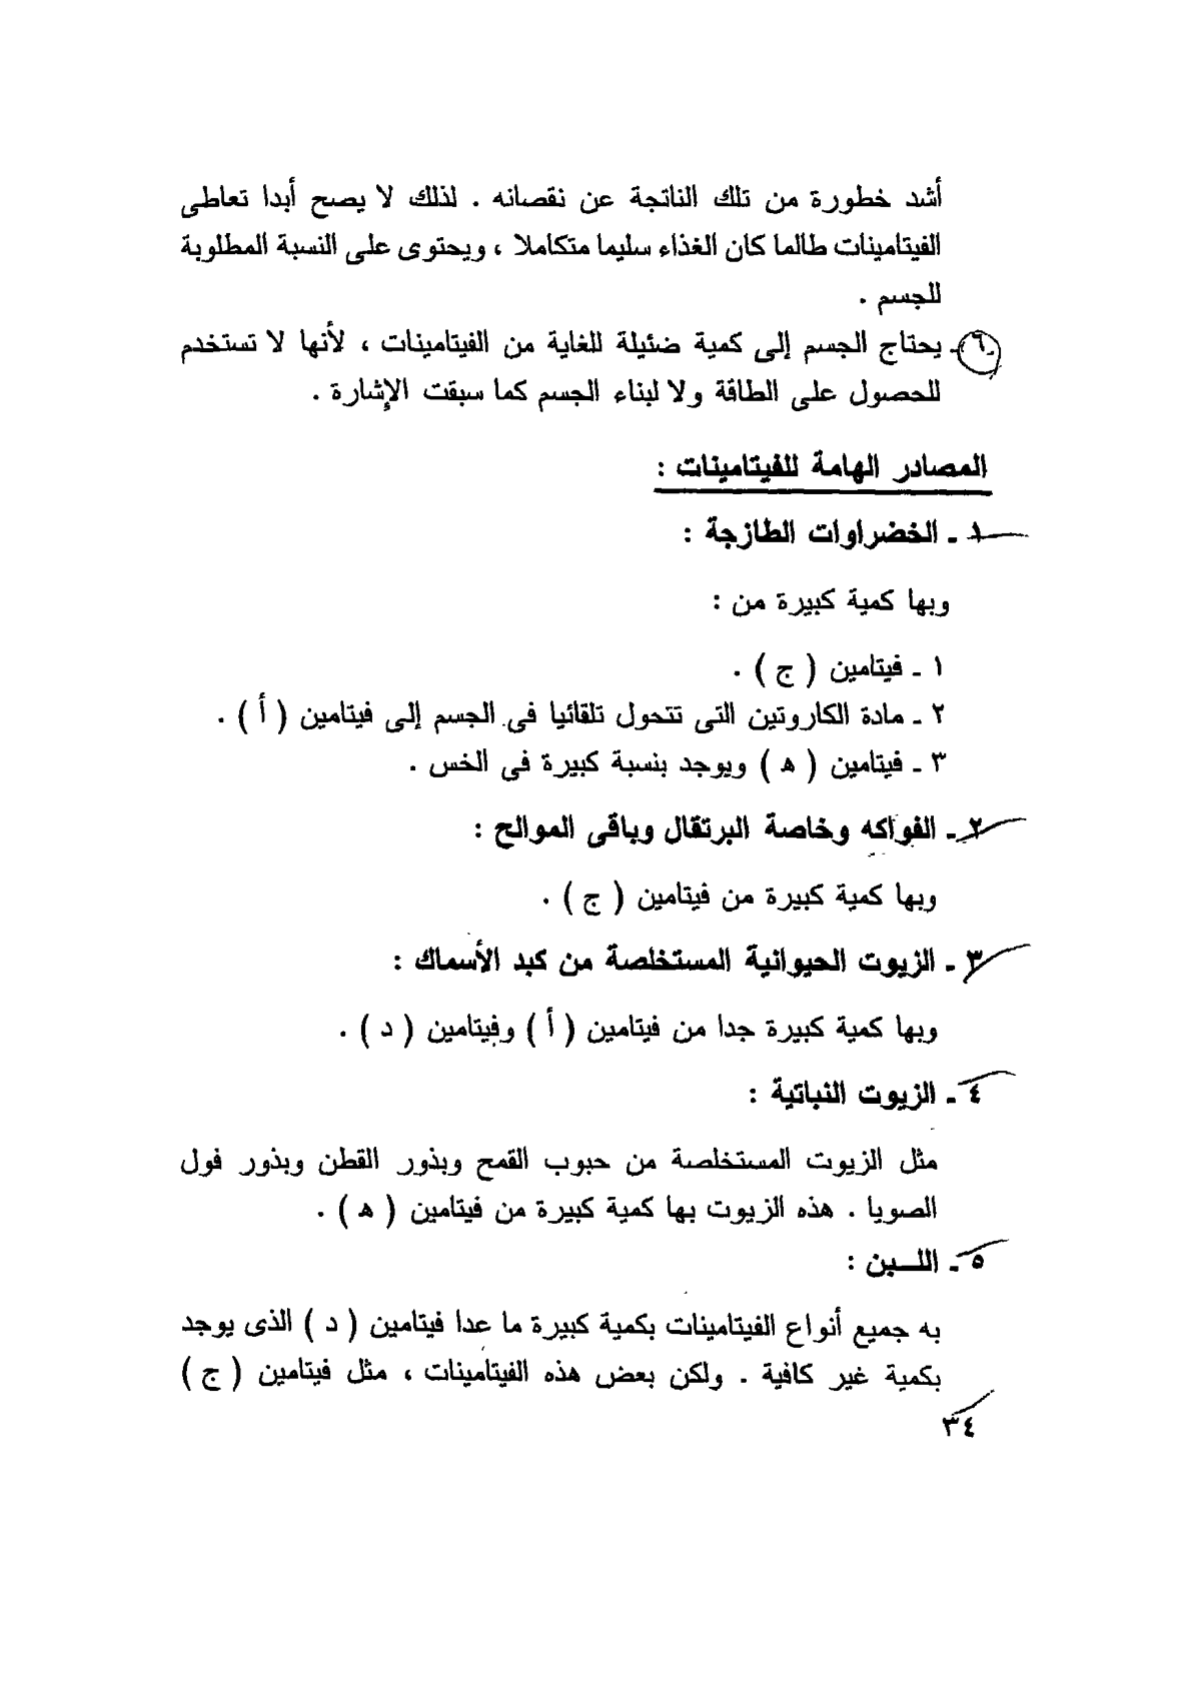 أشد خطورة من تلك الناتجة عن نقصانه . لذلك لا يصح أبدا تعاطى
الفيتامينات طالما كان الغذاء سليما متكاملا ، ويحتوى على النسبة المطلوبة
للجسم .
٦ـ يحتاج الجسم إلى كمية ضئيلة للغاية من الفيتامينات ، لأنها لا تستخدم
للحصول على الطاقة ولا لبناء الجسم كما سبقت الإشارة .
المصادر الهامة للفيتامينات :
١ ـ الخضراوات الطازجة :
وبها كمية كبيرة من :
١ ـ فيتامين ( ج ) .
٢ ـ مادة الكاروتين التى تتحول تلقائيا فى الجسم إلى فيتامين ( أ ) .
٣ ـ فيتامين ( ه ) ويوجد بنسبة كبيرة فى الخس .
٢ ـ الفواكه وخاصة البرتقال وباقى الموالح :
وبها كمية كبيرة من فيتامين ( ج ) .
٣ ـ الزيوت الحيوانية المستخلصة من كبد الأسماك :
وبها كمية كبيرة جدا من فيتامين ( أ ) وفيتامين ( د ) .
٤ ـ الزيوت النباتية :
مثل الزيوت المستخلصة من حبوب القمح وبذور القطن وبذور فول
الصويا . هذه الزيوت بها كمية كبيرة من فيتامين ( ه ) .
٥ ـ اللـــبن :
به جميع أنواع الفيتامينات بكمية كبيرة ما عدا فيتامين ( د ) الذى يوجد
بكمية غير كافية . ولكن بعض هذه الفيتامينات ، مثل فيتامين ( ج )
٣٤